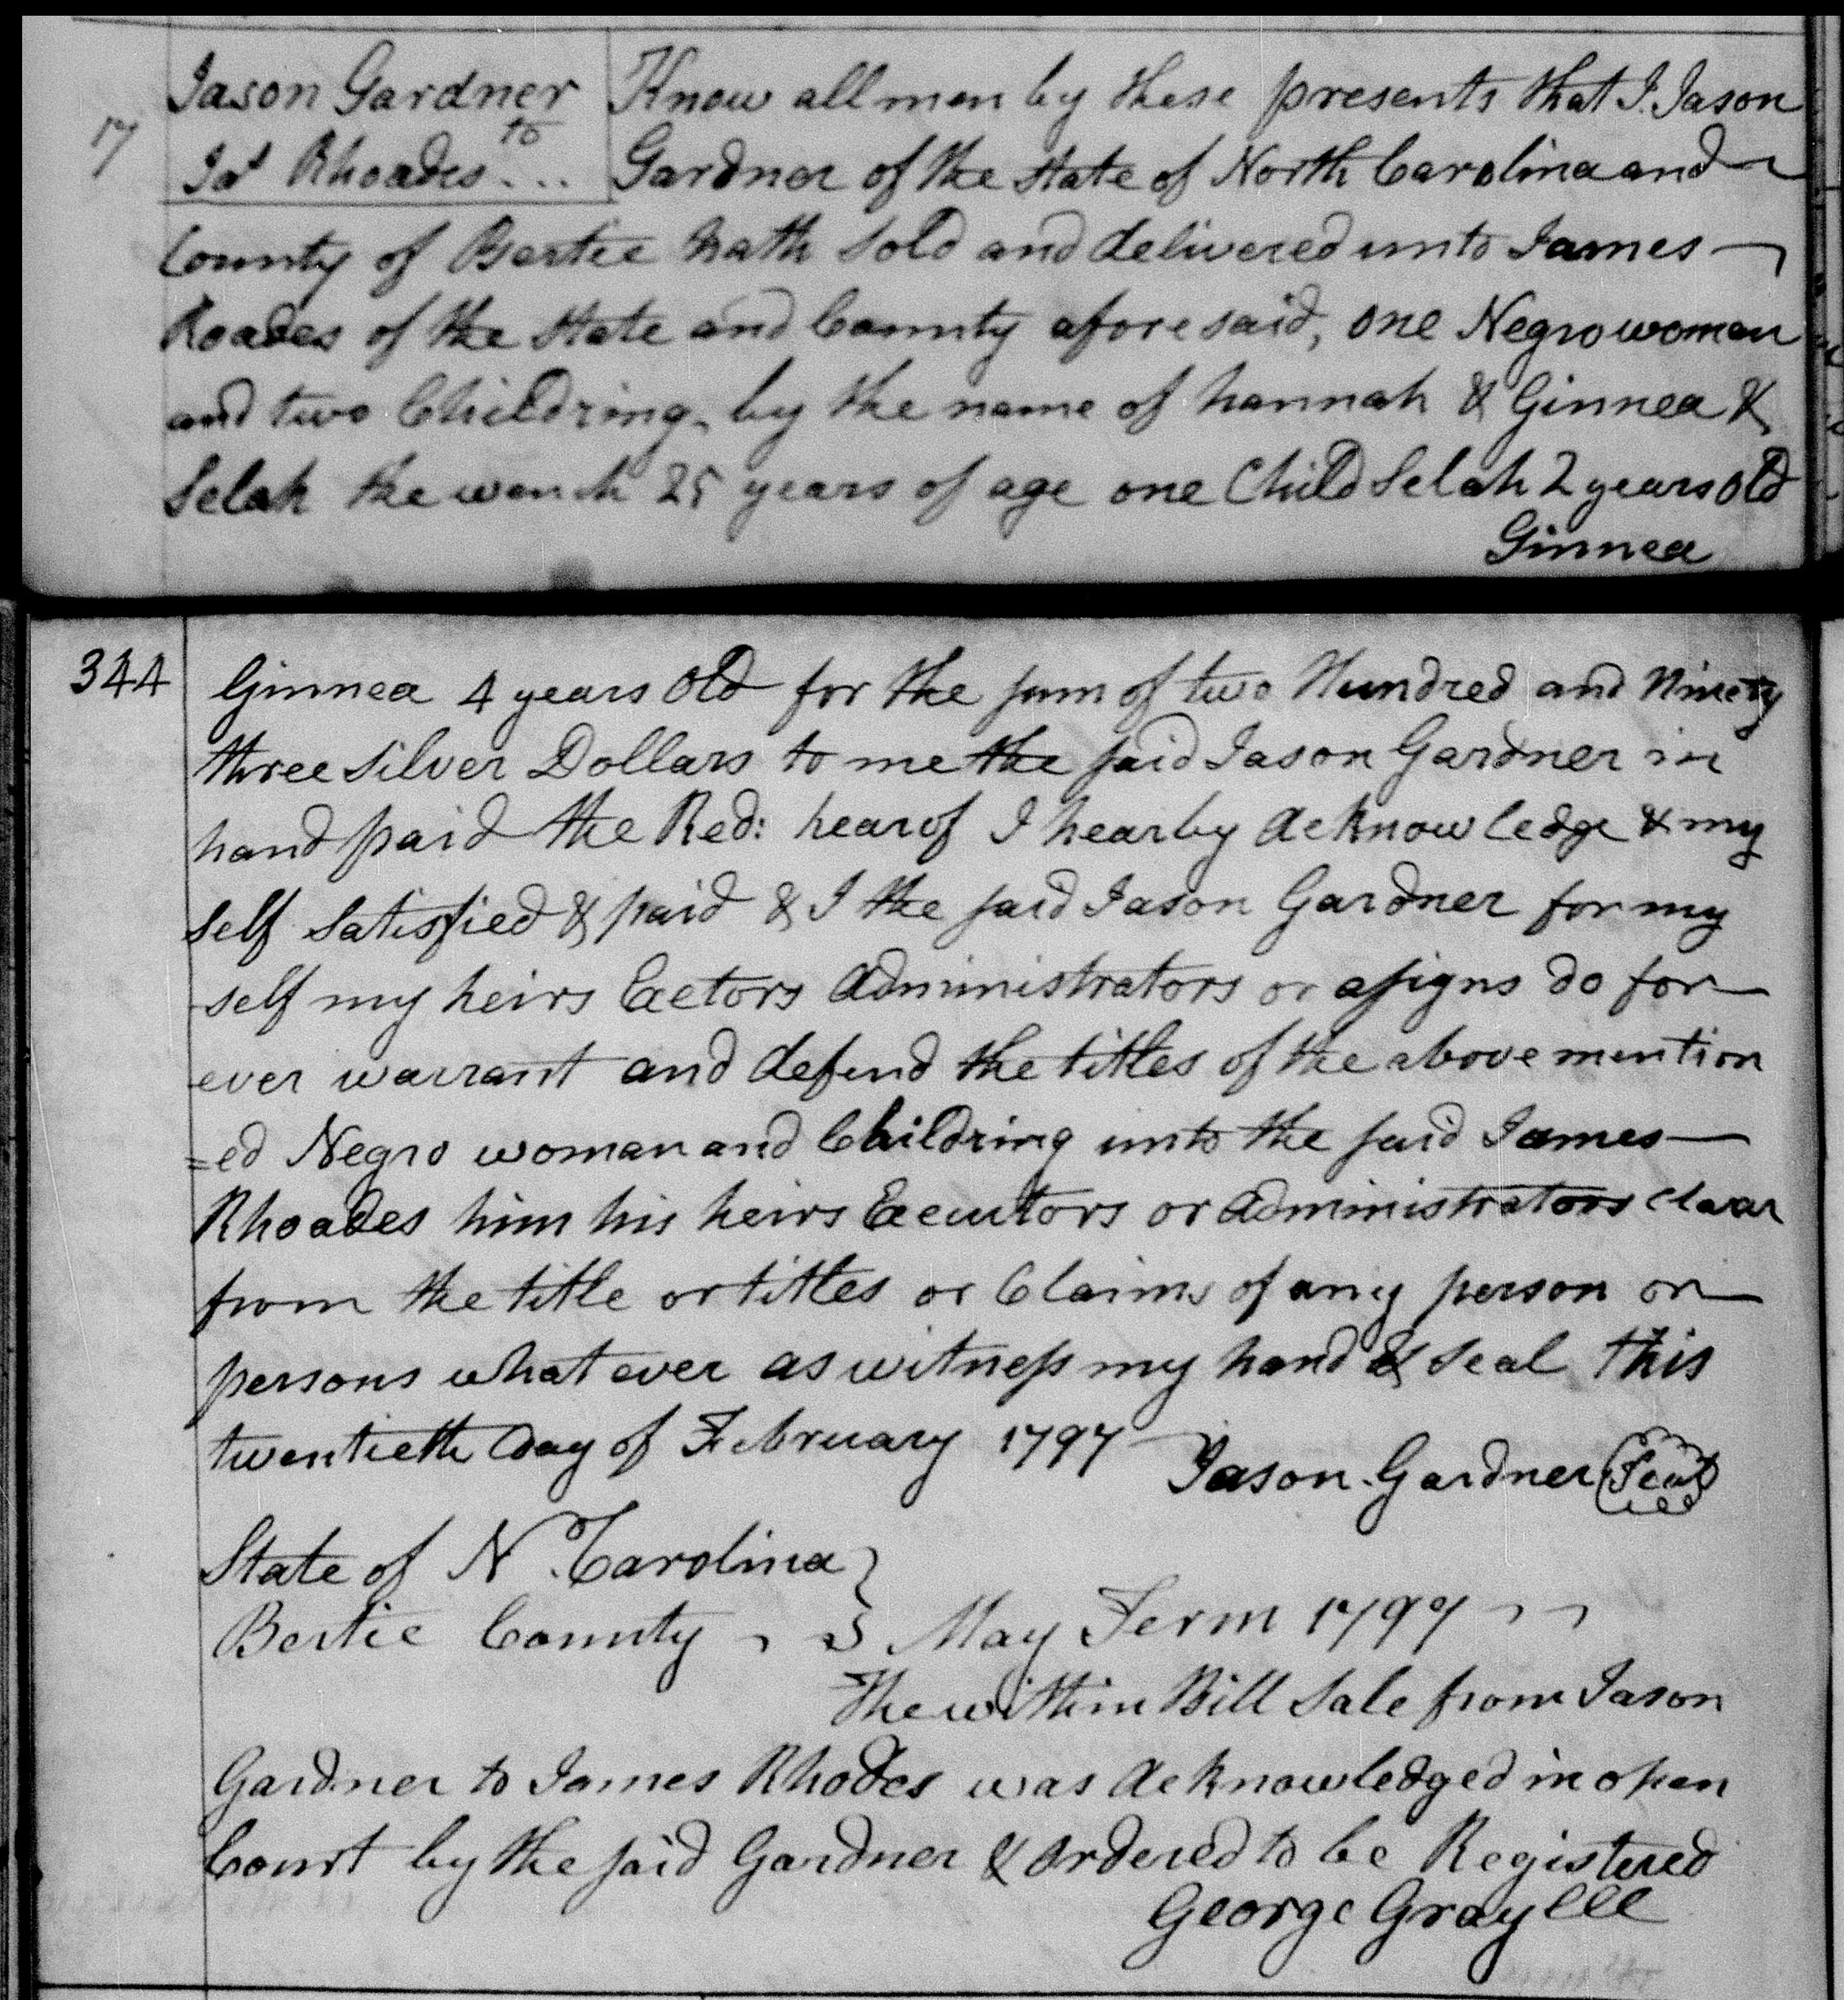 Jason Gardner
to
17
Jas Rhoades...
Know all men by these presents that I. Jason
Gardner of the state of North Carolina and
County of Bertie hath Sold and delivered unto James
Roades of the State and County aforesaid, one Negro woman
and two Childring, by the name of hannah & Ginnea &
Selah the wench 25 years of age one Child Selah 2 years old
Ginnea
344
Ginnea 4 years old for the sum of two Hundred and Ninety
three Silver Dollars to me the said Jason Gardner in
hand paid the Red: hearof I hearby acknowledge & my
self Satisfied & paid & I the said Jason Gardner for my
self my heirs Exctors administrators or assigns do for
ever warrant and defend the titles of the above mention
=ed Negro woman and Childring unto the said James
Rhoades him his heirs Executors or administrators clear
from the title or titles or Claims of any person or
persons whatever as witness my hand & Seal this
twentieth day of February 1797
Jason Gardner Seal
State of N. Carolina }
Bertie County } May Term 1797
The within Bill Sale from Jason
Gardner to James Rhodes was acknowledged in open
Court by the said Gardner & ordered to be Registered
George Gray CCC